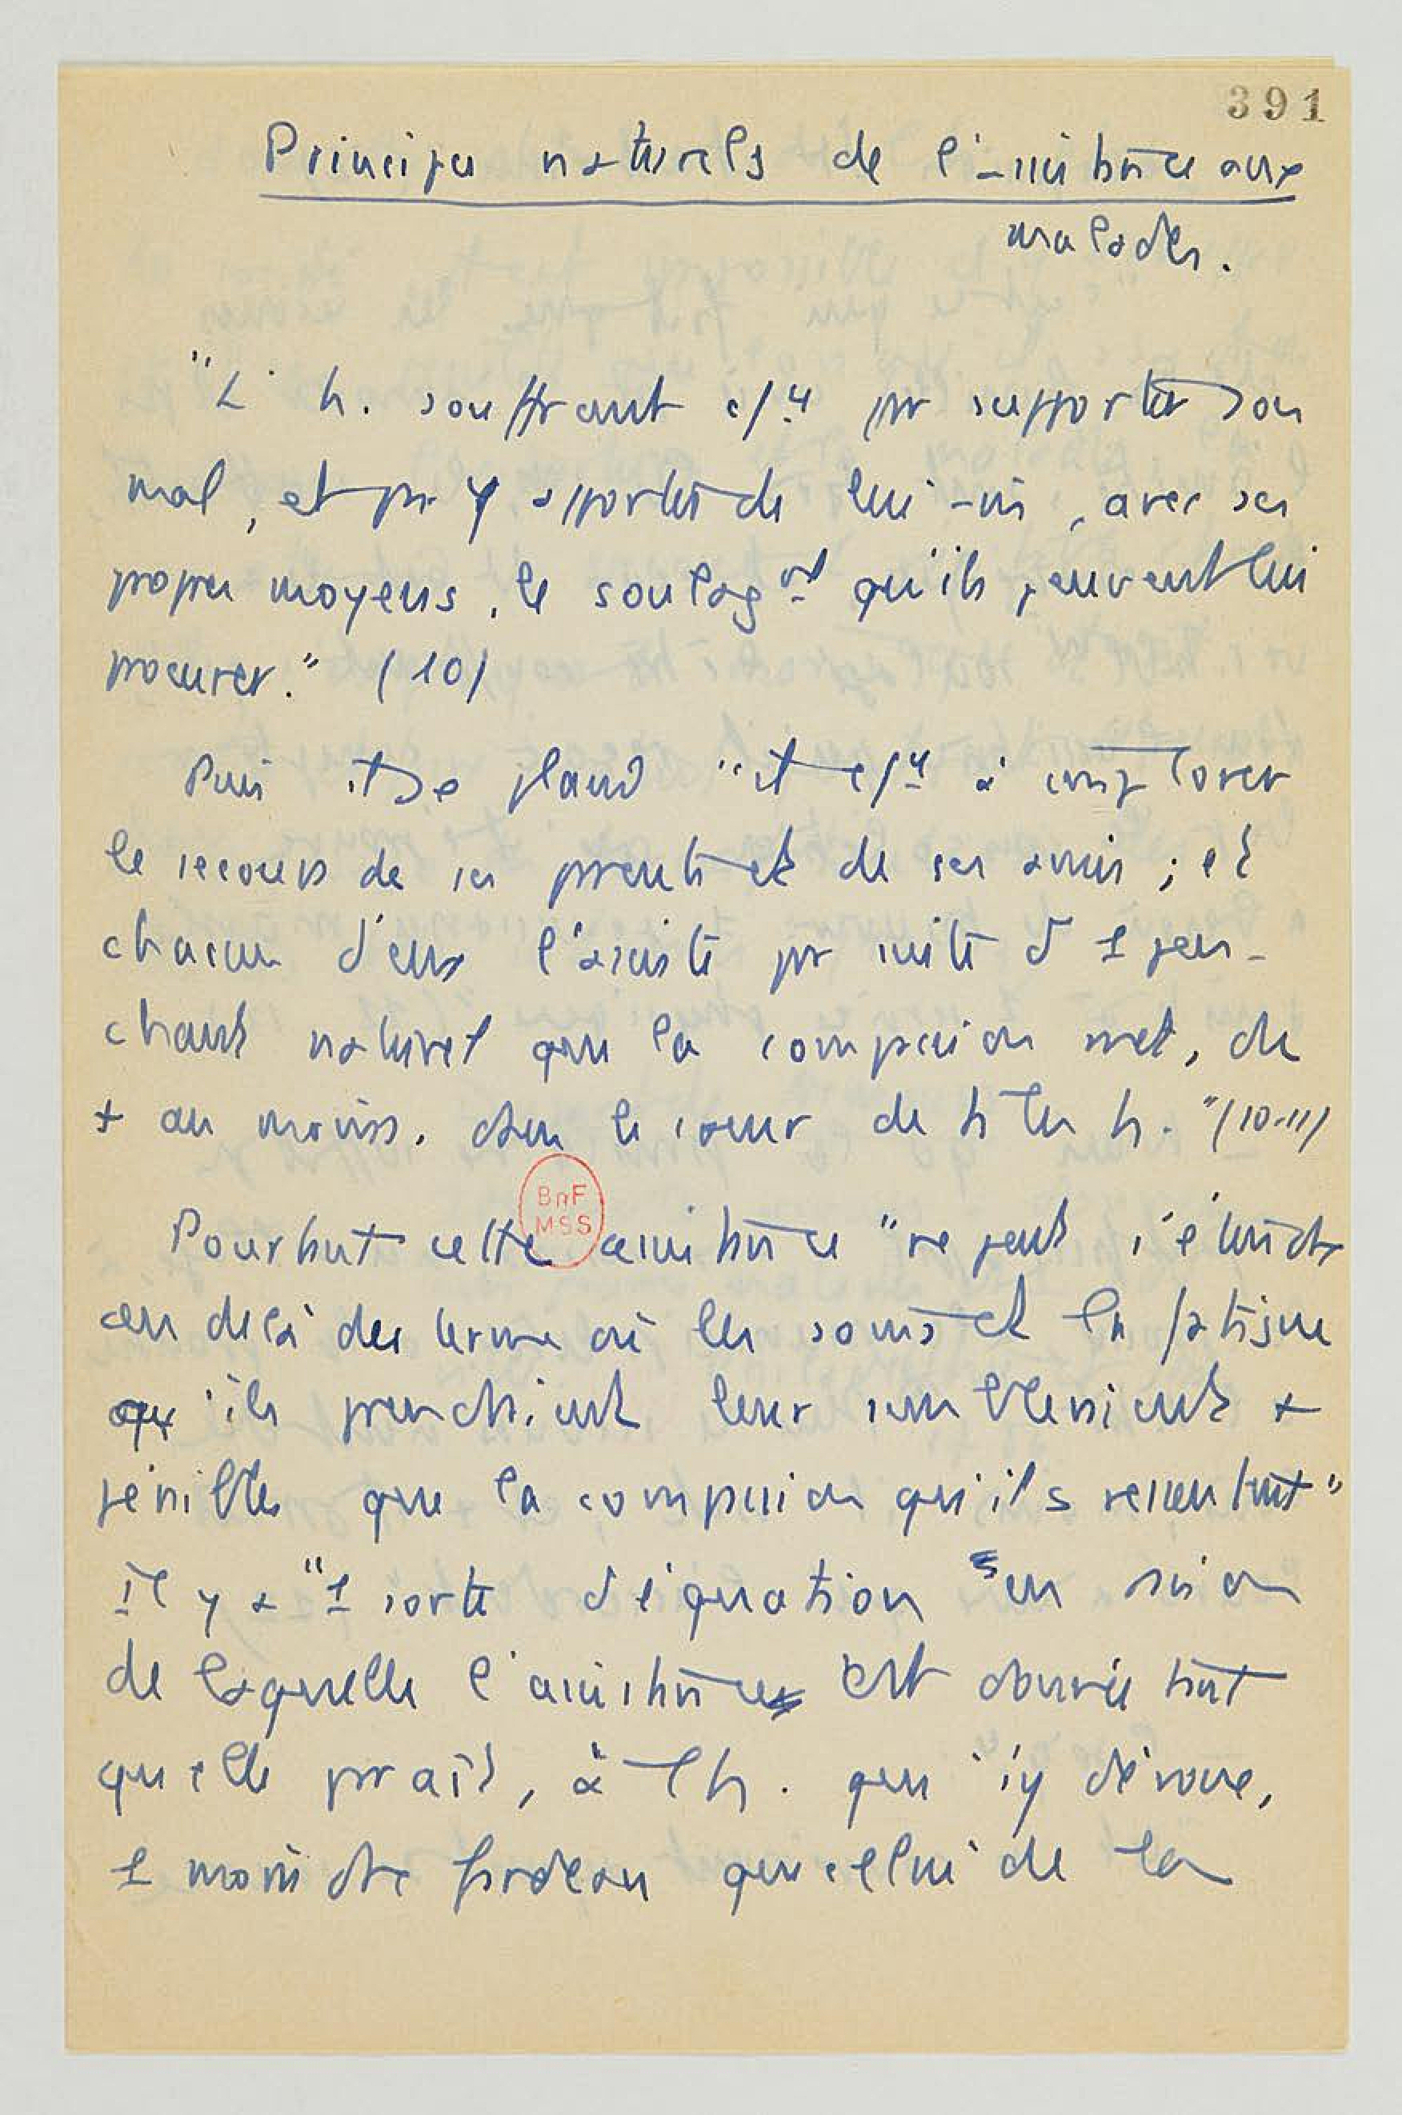 391
Principes naturels de l'assistance aux
malades.
"L'h. souffrant c/ce pr supporter son
mal, et pr y apporter de lui-m̄, avec ses
propres moyens, le soulagnt qu'ils peuvent lui
procurer." (10)
Puis il se plaind "il c/ce à implorer
le secours de ses parents et de ses amis ; et
chacun d'eux l'assiste par suite d'1 pen-
chant naturel que la compassion met, du
+ au moins, dans le cœur de ts les h. "(10-11)
Pourtant cette assistance "ne peut s'étendre
au delà des termes où les soins et la fatigue
qu'ils prendraient leur sembleraient +
pénibles que la compassion qu'ils ressentent"
il y a "1 sorte d'équation en raison
de laquelle l'assistance est donnée tant
qu'elle paraît, à l'h. qui s'y dévoue,
1 moindre fardeau que celui de la
BnF
MSS